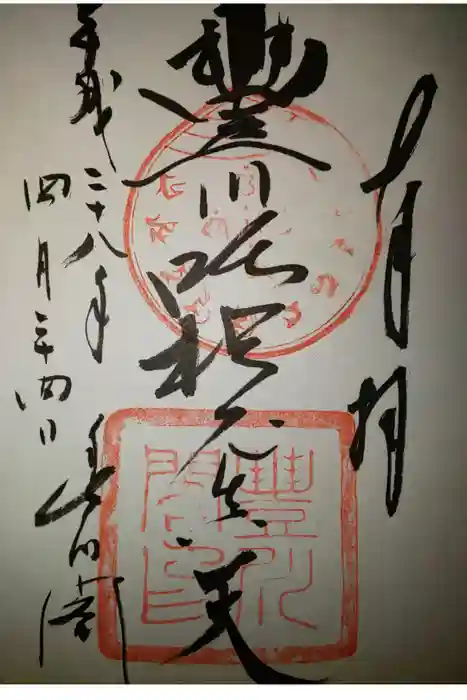 奉拝
豊川吒枳尼真天
平成二十八年
四月二十四日
豊川閣
豐川閣印